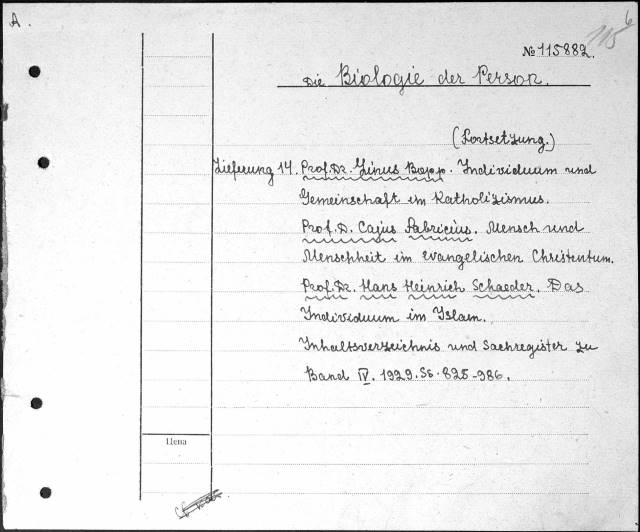 A.
6
115
№ 115882.
Die Biologie der Person.
(Fortsetzung.)
Lieferung 14. Prof. Dr. Linus Bopp. Individuum und
Gemeinschaft im Katholizismus.
Prof. D. Cajus Fabricius. Mensch und
Menschheit im evangelischen Christentum.
Prof. Dr. Hans Heinrich Schaeder. Das
Individuum im Islam.
Inhaltsverzeichnis und Sachregister zu
Band IV. 1929. Ss. 825-986.
Цена